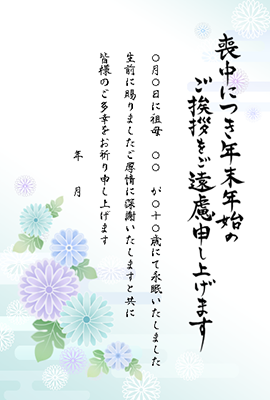 喪中につき年末年始の
ご挨拶をご遠慮申し上げます
〇月〇日に祖母 〇〇 が〇十〇歳にて永眠いたしました
生前に賜りましたご厚情に深謝いたしますと共に
皆様のご多幸をお祈り申し上げます
年 月